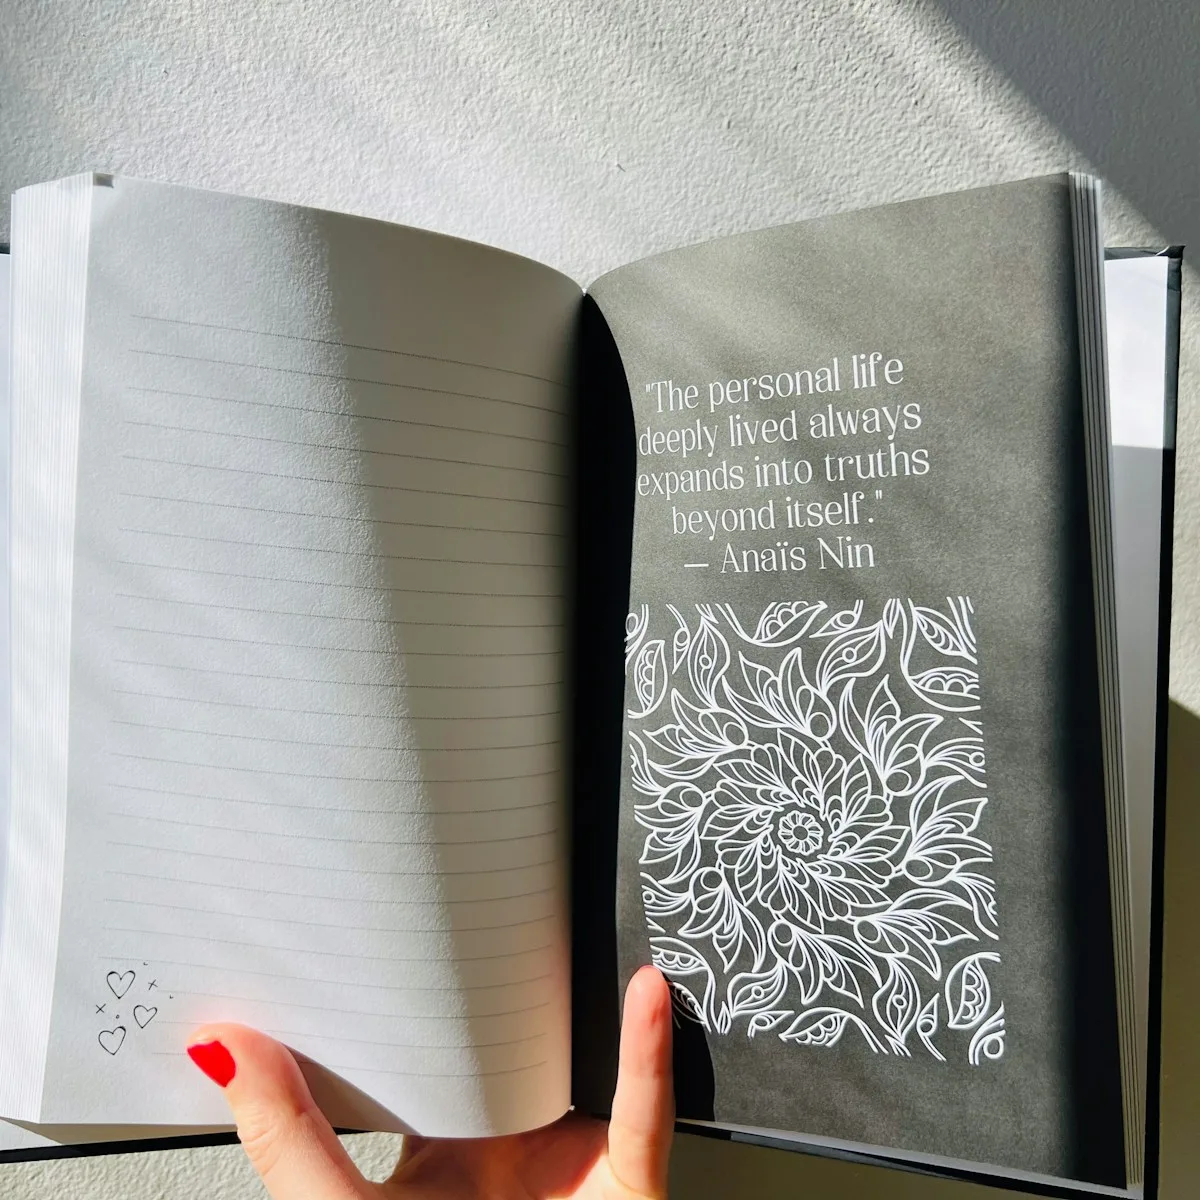 "The personal life
deeply lived always
expands into truths
beyond itself."
— Anaïs Nin